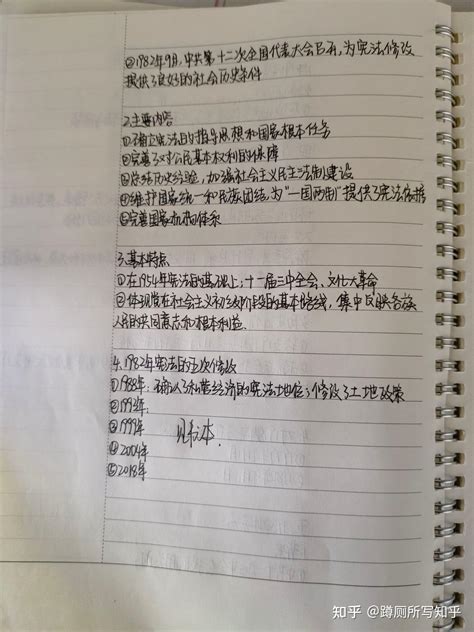 ②1982年9月,中共第十二次全国代表大会召开,为宪法修改
提供了良好的社会历史条件
2.主要内容
①确立宪法的指导思想和国家根本任务
②完善了对公民基本权利的保障
③总结历史经验,加强社会主义民主法制建设
④维护国家统一和民族团结,为"一国两制"提供了宪法依据
⑤完善国家机构体系
3.基本特点
①在1954年宪法的基础上;十一届三中全会、文化大革命
②体现党在社会主义初级阶段的基本路线,集中反映各族
人民的共同意志和根本利益.
4.1982年宪法的五次修改
①1988年:确认了私营经济的宪法地位;修改了土地政策
②1993年:
③1999年 见书本.
④2004年
⑤2018年
知乎 @蹲厕所写知乎